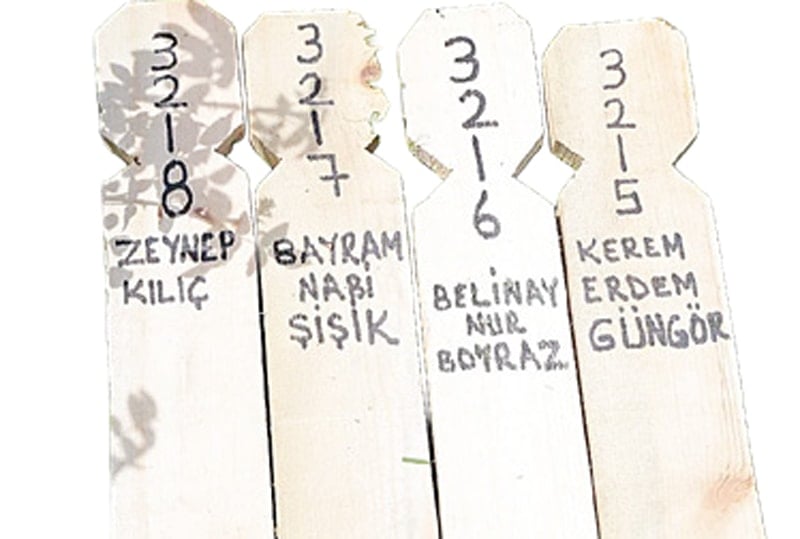 3
2
1
8
ZEYNEP
KILIÇ
3
2
1
7
BAYRAM
NABİ
ŞİŞİK
3
2
1
6
BELİNAY
NUR
BOYRAZ
3
2
1
5
KEREM
ERDEM
GÜNGÖR